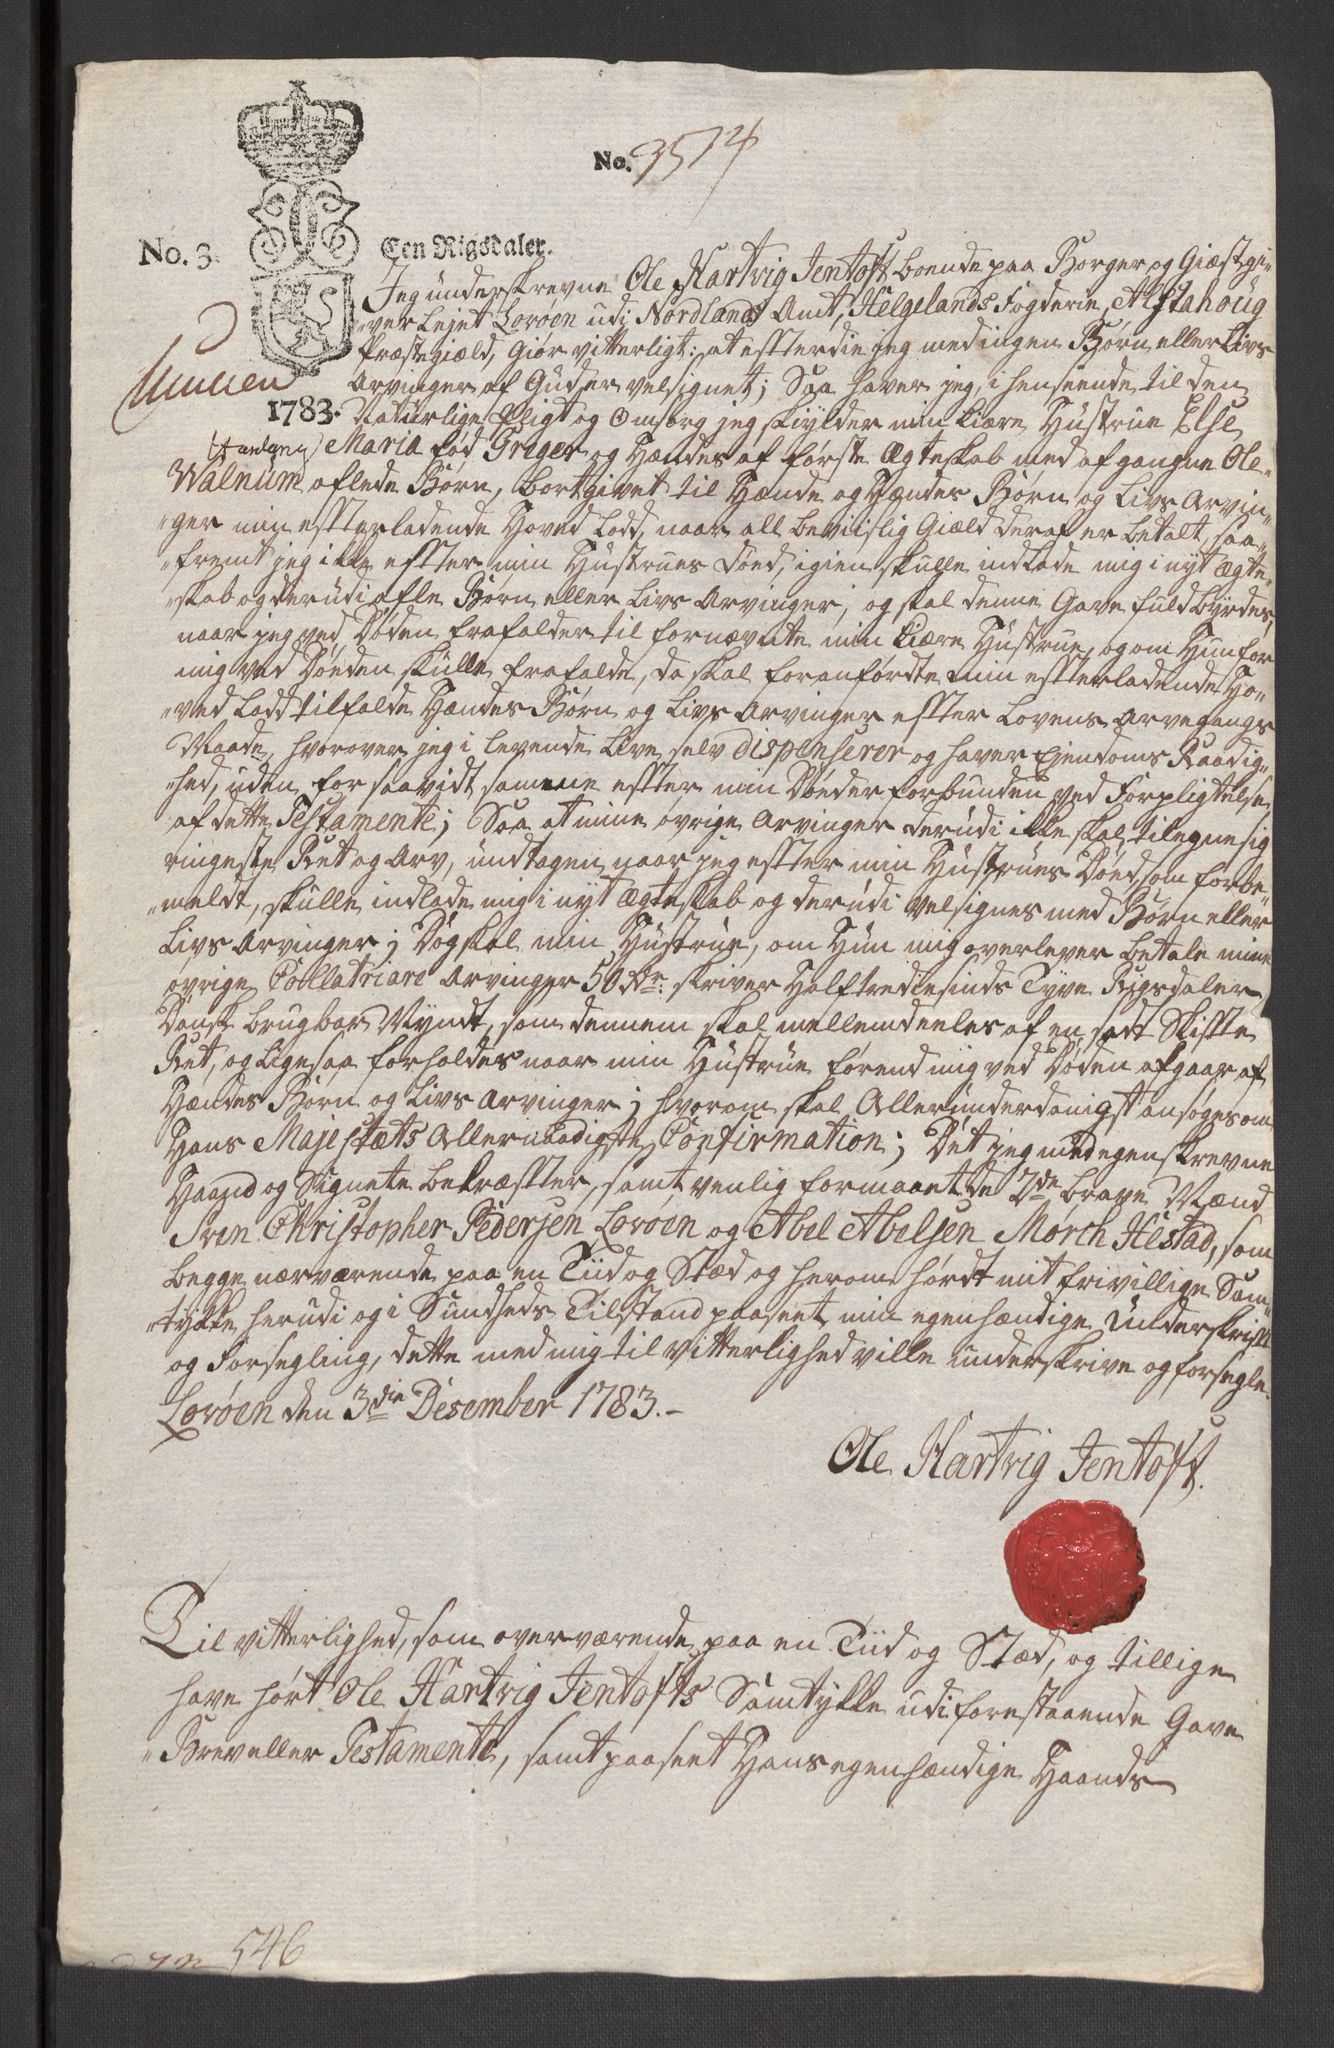 No. 3574
No. 3. Een Rigsdaler.
Jeg underskrevne Ole Hartvig Jentoft boende paa Borger og Giæstgi-
-ver Lejet Lorøen udi Nordlands Amt, Helgelands Fogderie, Alstahoug
Præstegield, Giør vitterligt: at effterdie jeg med ingen Børn eller Livs
Arvinger af Gud er velsignet; Saa haver jeg, i henseende til den
1783. Naturlige Pligt og Omsorg jeg skylder min kiære Hustrue Else
Maria fød Greger og Hændes af første Ægteskab med afgangne Ole
Walnum aflede Børn, bortgivet til Hænde og Hændes Børn og Livs Arvin-
-ger min effterladende Hoved Lodd, naar all beviislig Giæld deraf er betalt, saa-
-fremt jeg ikke effter min Hustrues Døed, igien skulle indlade mig i nyt Ægte-
-skab og derudi afle Børn eller Livs Arvinger, og skal denne Gave fuldbyrdes,
naar jeg ved Døden frafalder til fornævnte min kiære Hustrue, og om Hun for
mig ved Døeden skulle frafalde, da skal foranførdte min effterladende Ho-
-ved Lodd tilfalde Hændes Børn og Livs Arvinger effter Lovens Arvegangs
Maade, hvorover jeg i levende Live selv dispenserer og haver Ejendoms Raadig-
-hed, uden for saavidt samme effter min Død er forbunden ved Forpligtelse
af dette Testamente; Saa at mine øvrige Arvinger derudi ikke skal tilegne sig
ringeste Ret og Arv, undtagen naar jeg effter min Hustrues Døed, som forbe-
-meldt, skulle indlade mig i nyt Ægteskab og derudi velsignes med Børn eller
Livs Arvinger; Dog skal min Hustrue, om Hun mig overlever betale mine
øvrige Collatriare Arvinger 50 Rdr. skriver Halftrediesinds Tyve Rigsdaler
Dansk brugbar Myndt, som dennem skal mellemdeeles af en sadt Skiffte
Ret, og ligesaa forholdes naar min Hustrue førend mig ved Døden afgaar af
Hændes Børn og Livs Arvinger; hvorom skal Allerunderdanigst ansøges om
Hans Majestæts Allernaadigste Confirmation; Det jeg med egen skrevne
Haand og Signete bekræffter, samt venlig formaaet de 2de brave Mænd
Sven Christopher Pedersen Lorøen og Abel Abelsen Mørch Hestad, som
begge nærværende paa en Tiid og Stæd og herom hørdt mit frivillige Sam-
-tykke herudi og i Sundheds Tilstand paaseet min egenhændige Underskrifft
og Forsegling, dette med mig til Vitterlighed ville underskrive og forsegle.
Lorøen den 3die Desember 1783.-
Ole Hartvig Jentoft.
Til vitterlighed, som overværende paa en Tiid og Stæd, og tillige
have hørt Ole Hartvig Jentofts Samtykke udi forestaaende Gave
-Brev eller Testamente, samt paaseet Hans egenhændige Haands
546